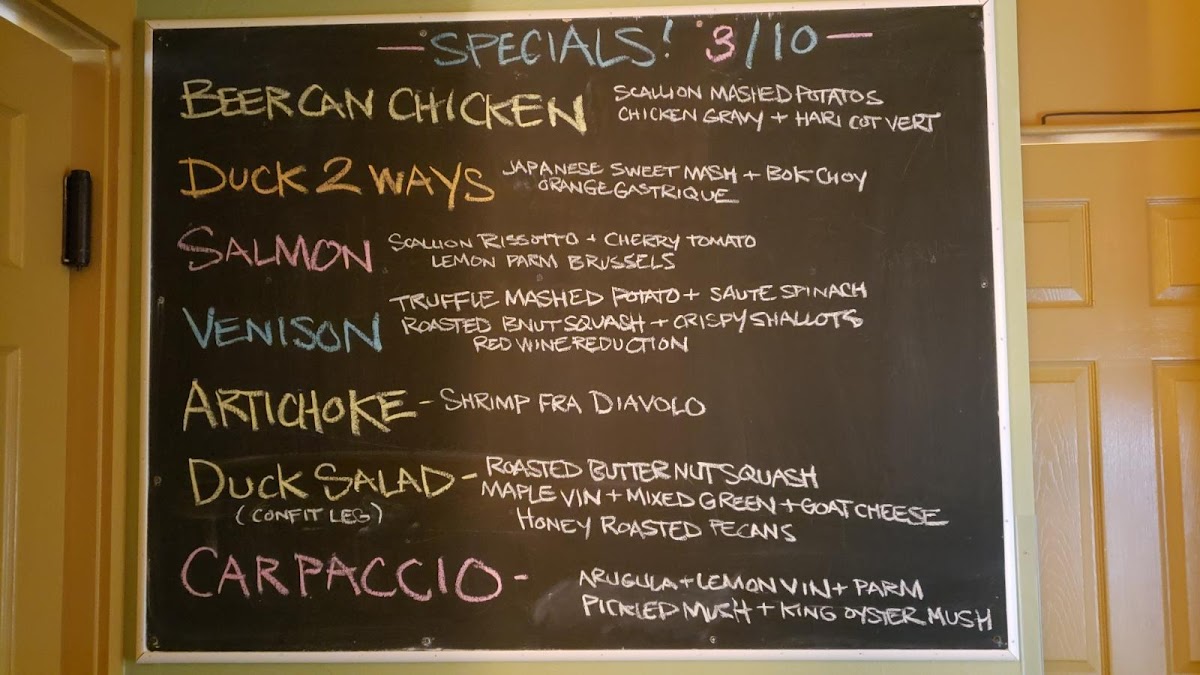 — SPECIALS! 3/10 —
BEER CAN CHICKEN
SCALLION MASHED POTATOS
CHICKEN GRAVY + HARI COT VERT
DUCK 2 WAYS
JAPANESE SWEET MASH + BOK CHOY
ORANGE GASTRIQUE
SALMON
SCALLION RISSOTTO + CHERRY TOMATO
LEMON PARM BRUSSELS
VENISON
TRUFFLE MASHED POTATO + SAUTE SPINACH
ROASTED BNUT SQUASH + CRISPY SHALLOTS
RED WINE REDUCTION
ARTICHOKE - SHRIMP FRA DIAVOLO
DUCK SALAD -
(CONFIT LEG)
ROASTED BUTTERNUT SQUASH
MAPLE VIN + MIXED GREEN + GOAT CHEESE
HONEY ROASTED PECANS
CARPACCIO -
ARUGULA + LEMON VIN + PARM
PICKLED MUSH + KING OYSTER MUSH